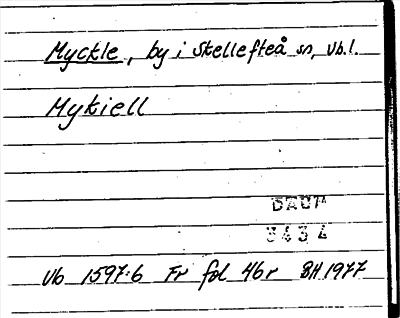 Myckle, by i Skellefteå sn, Vb.l.
Mykiell
DAUM
3434
Vb 1597:6 Fr fol 46r BH 1977